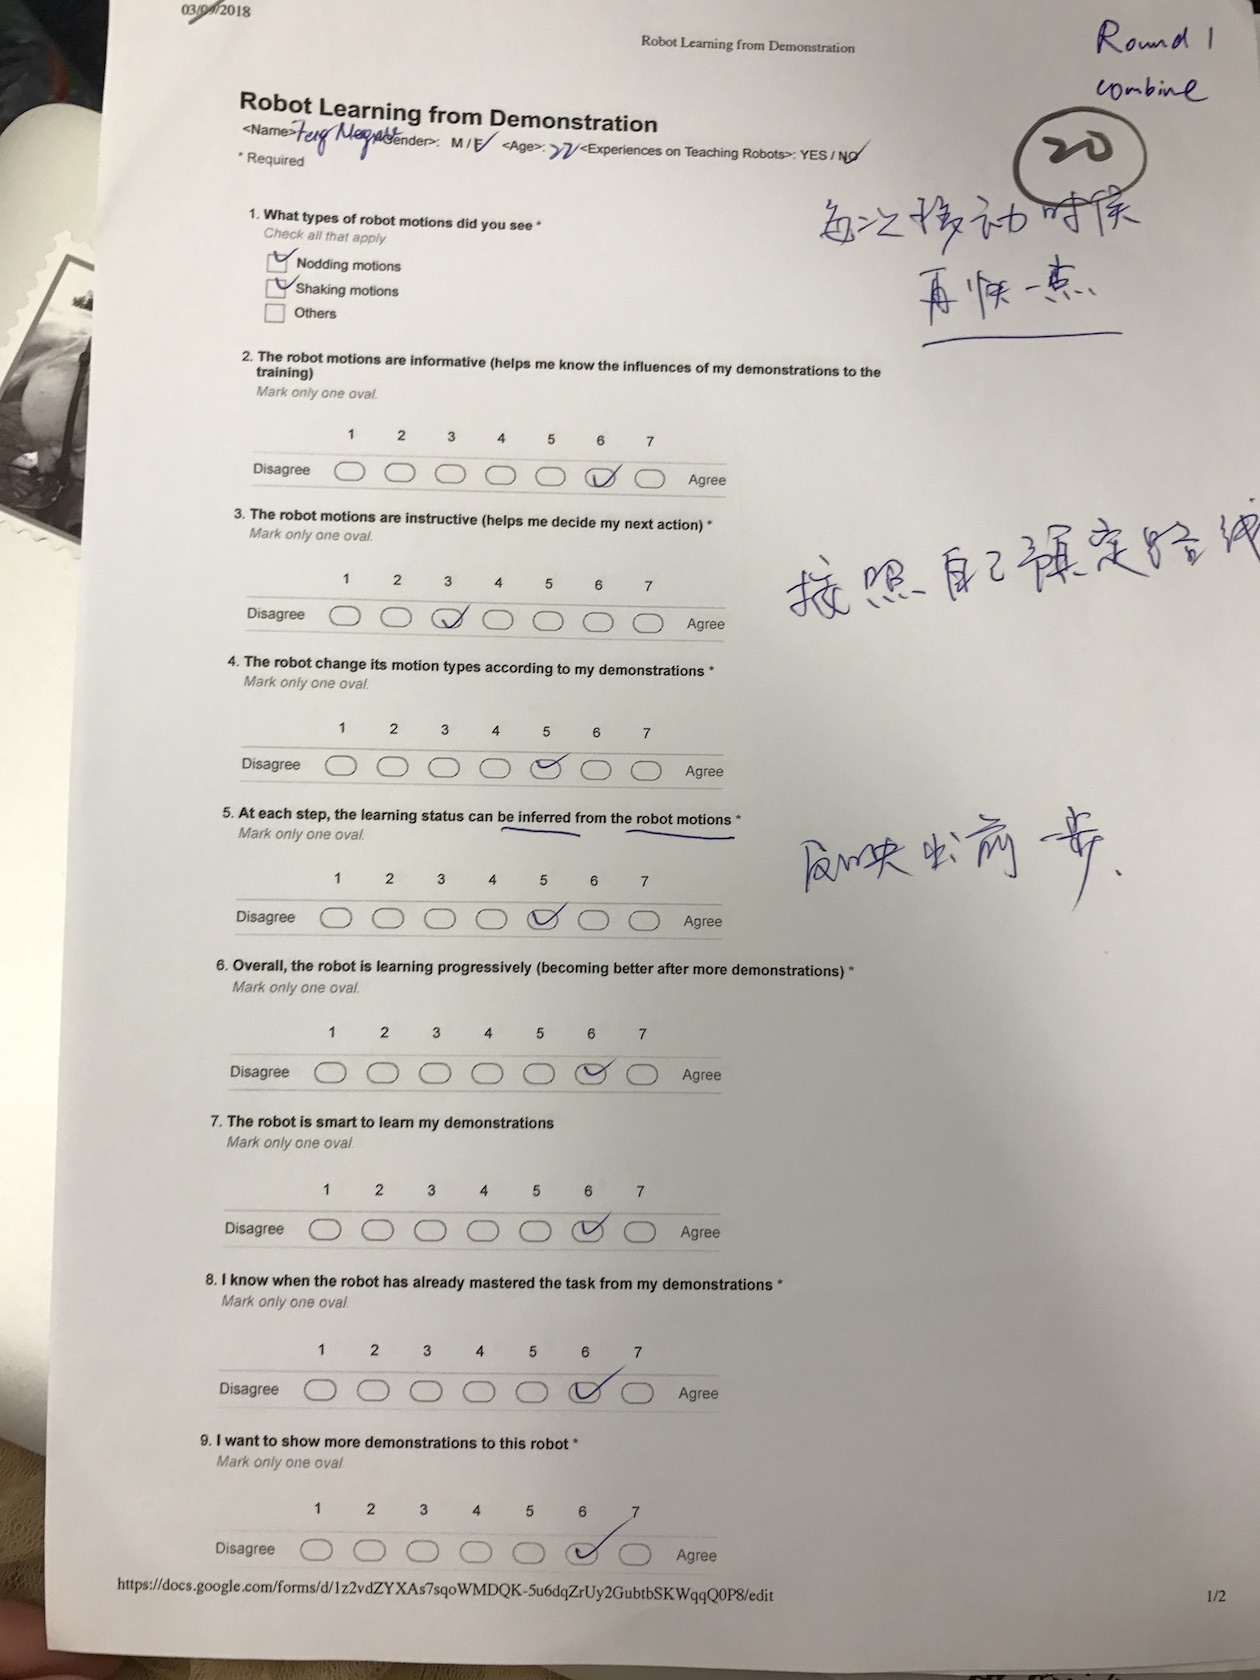 03/09/2018
Robot Learning from Demonstration
Round 1
combine
20
Robot Learning from Demonstration
<Name>: Gender>: M / F <Age>: 22 <Experiences on Teaching Robots>: YES / NO
* Required
每次移动时候
再快一点.
1. What types of robot motions did you see *
Check all that apply
Nodding motions
Shaking motions
Others
2. The robot motions are informative (helps me know the influences of my demonstrations to the
training)
Mark only one oval.
1 2 3 4 5 6 7
Disagree Agree
3. The robot motions are instructive (helps me decide my next action) *
Mark only one oval.
1 2 3 4 5 6 7
Disagree Agree
按照自己预定路线
4. The robot change its motion types according to my demonstrations *
Mark only one oval.
1 2 3 4 5 6 7
Disagree Agree
5. At each step, the learning status can be inferred from the robot motions *
Mark only one oval.
反映出前一步.
1 2 3 4 5 6 7
Disagree Agree
6. Overall, the robot is learning progressively (becoming better after more demonstrations) *
Mark only one oval.
1 2 3 4 5 6 7
Disagree Agree
7. The robot is smart to learn my demonstrations
Mark only one oval.
1 2 3 4 5 6 7
Disagree Agree
8. I know when the robot has already mastered the task from my demonstrations *
Mark only one oval.
1 2 3 4 5 6 7
Disagree Agree
9. I want to show more demonstrations to this robot *
Mark only one oval
1 2 3 4 5 6 7
Disagree Agree
https://docs.google.com/forms/d/1z2vdZYXAs7sqoWMDQK-5u6dqZrUy2GubtbSKWqqQ0P8/edit
1/2